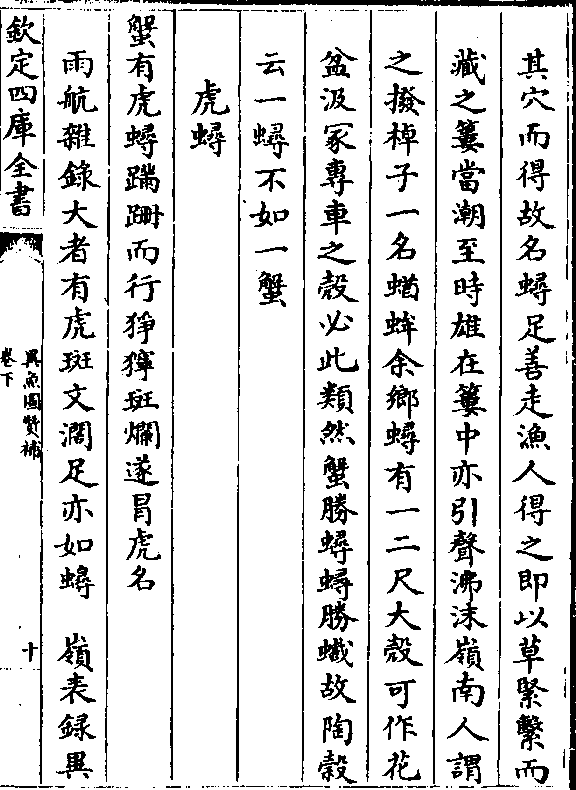 其穴而得故名蟳足善走漁人得之即以草緊繫而
藏之簍當潮至時雄在簍中亦引聲沸沫嶺南人謂
之撥棹子一名蝤蛑余鄉蟳有一二尺大殼可作花
盆汲冢專車之殼必此類然蟹勝蟳蟳勝蠘故陶穀
云一蟳不如一蟹
虎蟳
蟹有虎蟳蹣跚而行猙獰斑爛遂冐虎名
雨航雜錄大者有虎斑文濶足亦如蟳　嶺表録異
欽定四庫全書
異魚圖贊補
卷下
十